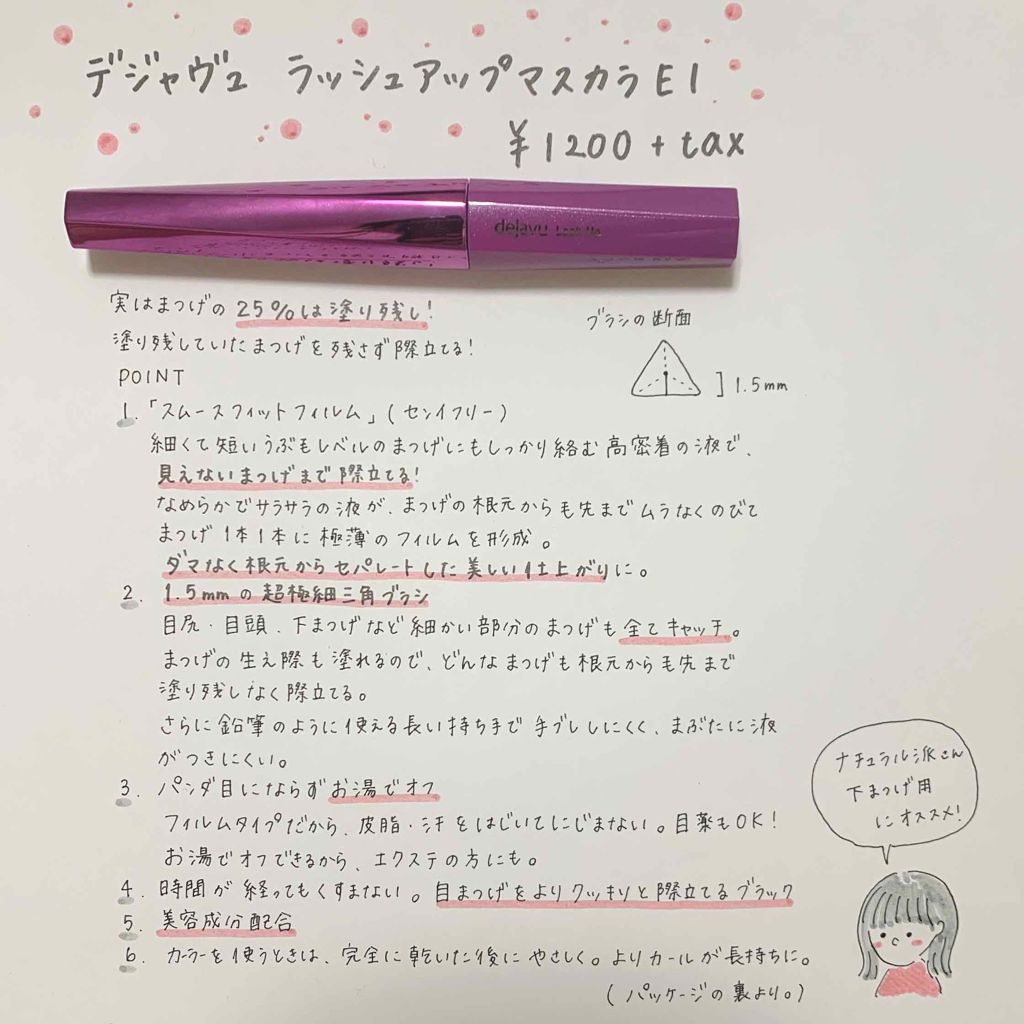 デジャヴュ ラッシュアップマスカラE1
¥1200+tax
dejavu Lash Up
実はまつげの 25%は塗り残し!
塗り残していたまつげを残さず際立てる!
ブラシの断面
1.5mm
POINT
1.「スムースフィットフィルム」(センイフリー)
細くて短いうぶ毛レベルのまつげにもしっかり絡む高密着の液で、
見えないまつげまで際立てる!
なめらかでサラサラの液が、まつげの根元から毛先までムラなくのびて
まつげ1本1本に極薄のフィルムを形成。
ダマなく根元からセパレートした美しい仕上がりに。
2. 1.5mmの超極細三角ブラシ
目尻・目頭、下まつげなど細かい部分のまつげも全てキャッチ。
まつげの生え際も塗れるので、どんなまつげも根元から毛先まで
塗り残しなく際立てる。
さらに鉛筆のように使える長い持ち手で手ブレしにくく、まぶたに液
がつきにくい。
3. パンダ目にならずお湯でオフ
フィルムタイプだから、皮脂・汗をはじいてにじまない。目薬もOK!
お湯でオフできるから、エクステの方にも。
4. 時間が経ってもくすまない。自まつげをよりクッキリと際立てるブラック
5. 美容成分配合
6. カーラーを使うときは、完全に乾いた後にやさしく。よりカールが長持ちに。
(パッケージの裏より。)
ナチュラル派さん
下まつげ用
にオススメ!